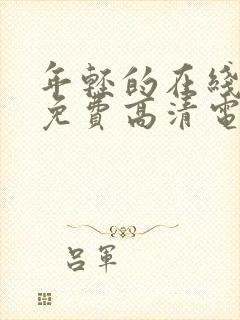 年轻的在线
免费高清电
吕军